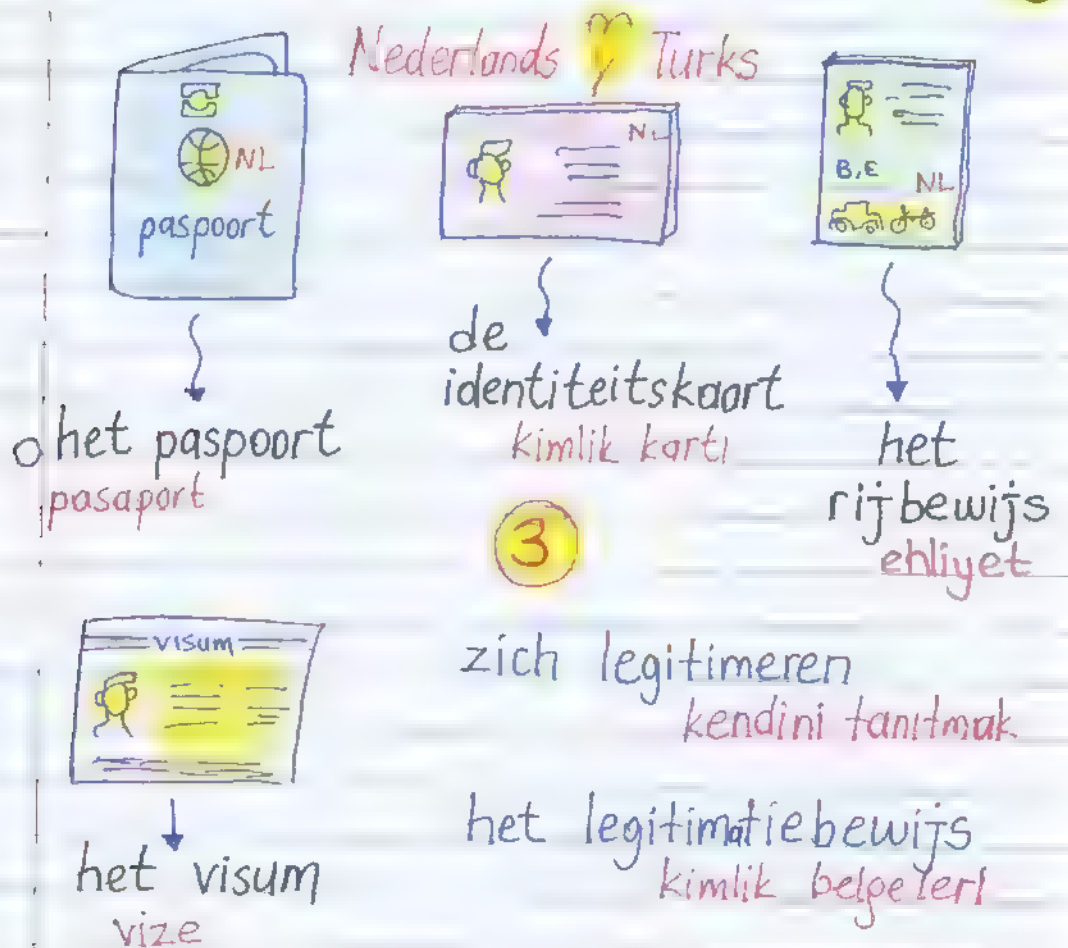 Nederlands Turks
NL
paspoort
NL
B, E
NL
het paspoort
pasaport
de
identiteitskaart
kimlik kartı
het
rijbewijs
ehliyet
3
visum
het visum
vize
zich legitimeren
kendini tanıtmak
het legitimatiebewijs
kimlik belgeleri